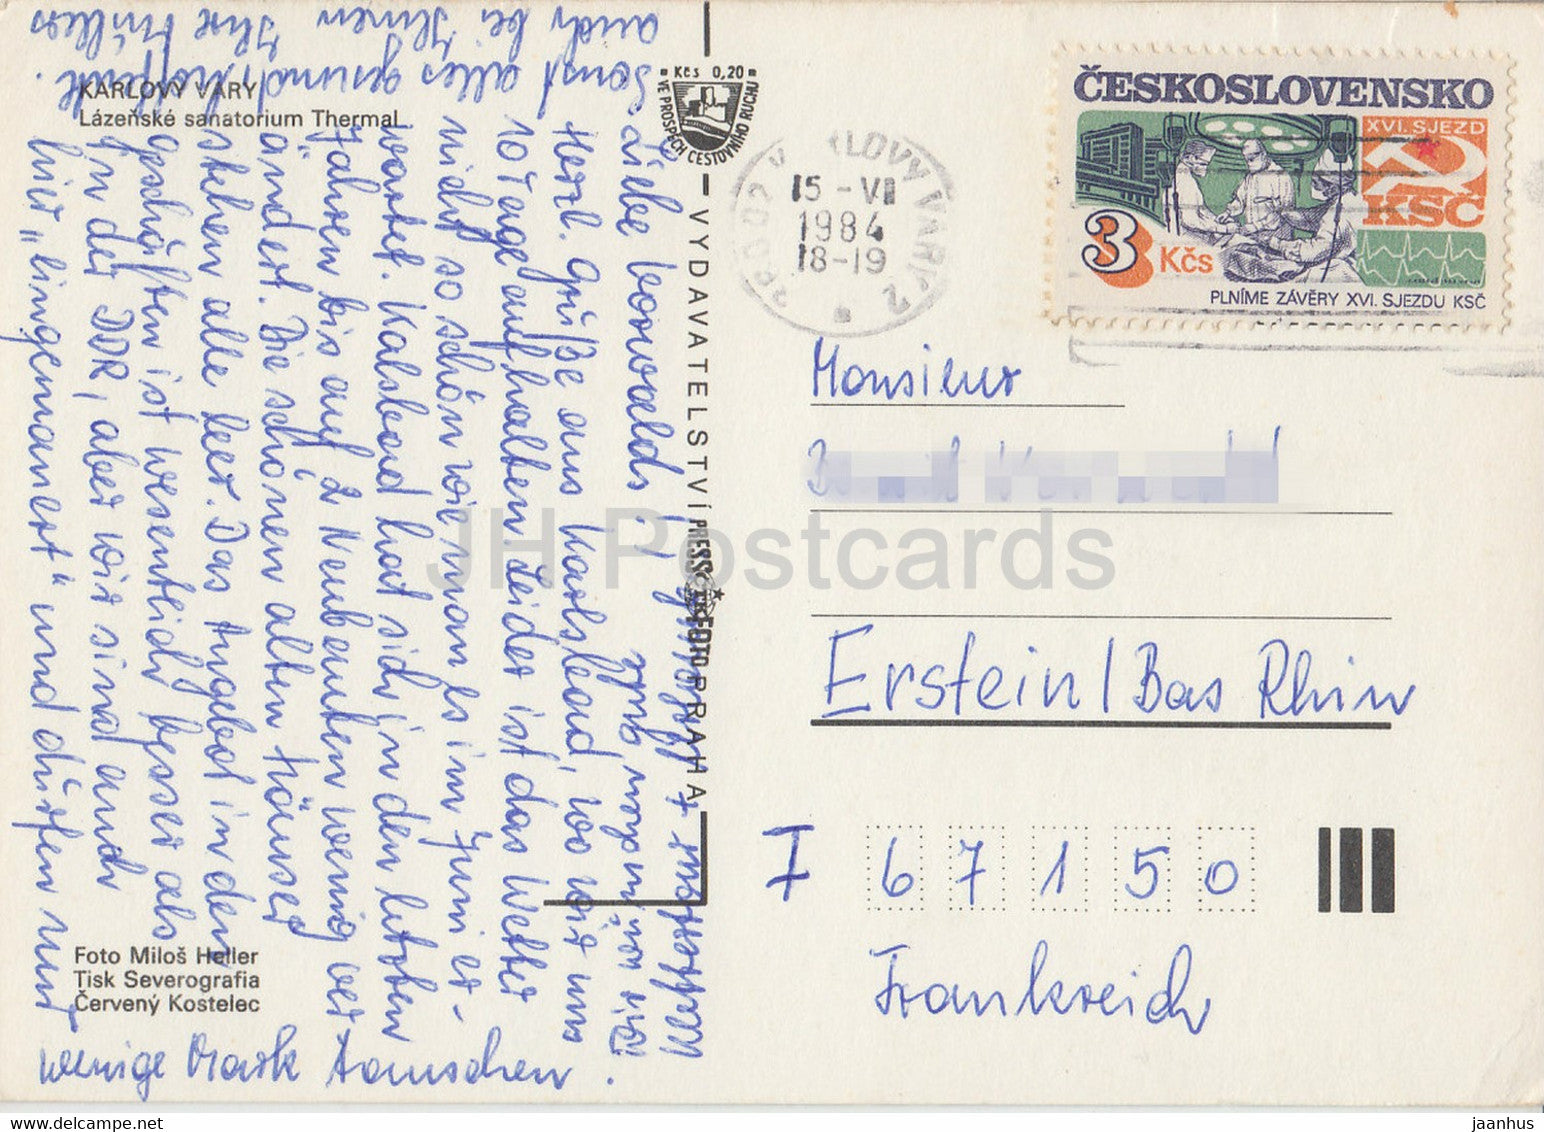 KARLOVY VARY
Lázeňské sanatorium Thermal
Kčs 0,20
VE PROSPĚCH CESTOVNÍHO RUCHU
VYDAVATELSTVÍ PRESSFOTO PRAHA
KARLOVY VARY 2
15 - VII
1984
18-19
ČESKOSLOVENSKO
XVI. SJEZD
KSČ
3 Kčs
PLNÍME ZÁVĚRY XVI. SJEZDU KSČ
Liebe
Herzl. Grüße aus Karlsbad, wo wir uns
10 Tage aufhalten. Leider ist das Wetter
nicht so schön wie man es im Juni er-
wartet. Karlsbad hat sich in den letzten
Jahren bis auf 2 Neubauten wenig ver-
ändert. Die schönen alten Häuser
stehen alle leer. Das Angebot in den
Geschäften ist wesentlich besser als
in der DDR, aber wir sind auch
hier „eingemauert" und dürfen nur
wenige Mark tauschen.
Sonst alles gesund, hoffentl.
auch bei Ihnen Ihre Müllers
Monsieur
Erstein / Bas Rhin
F 67150
Frankreich
Foto Miloš Heller
Tisk Severografia
Červený Kostelec
JH Postcards
jaanhus @ www.delcampe.net